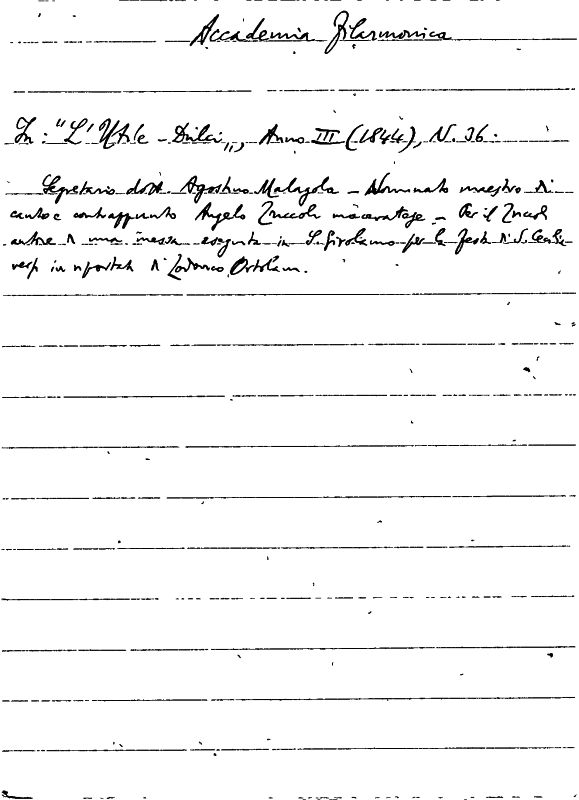 Accademia Filarmonica
In: "L'Utile-Dulci", Anno III (1844), N. 36.
Segretario dott. Agostino Malagola - Nominato maestro di
canto e contrappunto Angelo Zuccoli maceratese - Per il Zuccoli
autore di una messa eseguita in S. Girolamo per la festa di S. Cecilia
versi in di Lodovico Ortolani.